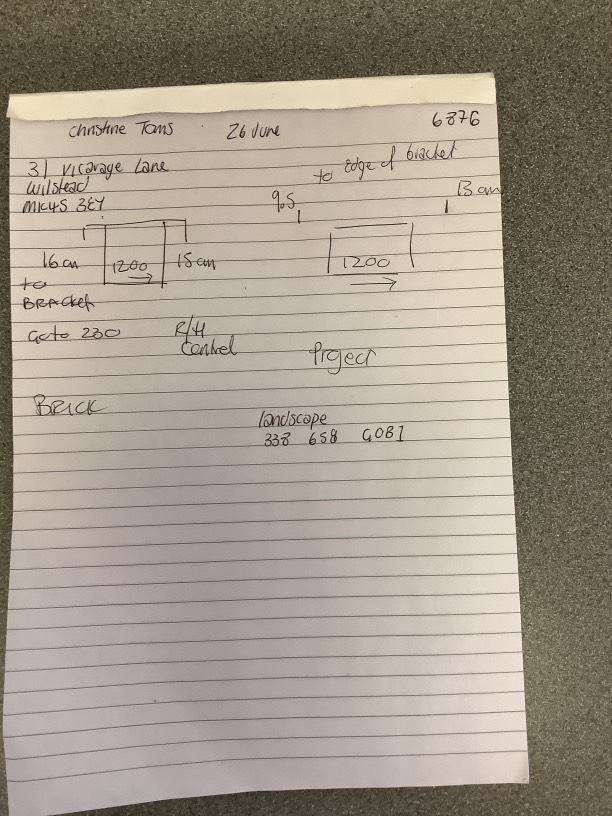 Christine Toms 26 June 6876
31 Vicarage Lane
Wilstead
MK45 3EY
to Edge of bracket
9.5 13 cm
16 cm 1200 15 cm 1200
to
BRACKET
Geto 230 R/H
Control
Project
BRICK
landscape
338 658 GOBI